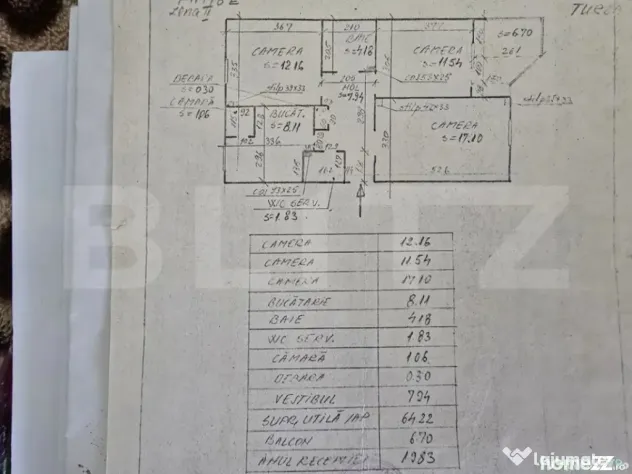 ZONA II
TURDA
367
210
CAMERA
S=12.16
BAIE
S=4.18
CAMERA
S=11.54
S=6.70
261
335
200
HOL
S=7.94
DEBARA
S=0.30
CAMARĂ
S=1.06
BUCĂT.
S=8.11
CAMERA
S=17.10
92
336
296
330
526
WC SERV.
S=1.83
CAMERA 12.16
CAMERA 11.54
CAMERA 17.10
BUCĂTARIE 8.11
BAIE 4.18
WC SERV. 1.83
CĂMARĂ 1.06
DEBARA 0.30
VESTIBUL 7.94
SUPR, UTILĂ /AP. 64.22
BALCON 6.70
ANUL RECEPTIEI 1983
BLITZ
lajumate
homezz.ro